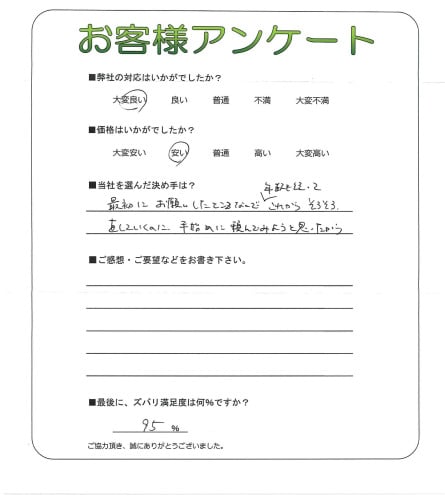 お客様アンケート
■弊社の対応はいかがでしたか？
大変良い 良い 普通 不満 大変不満
■価格はいかがでしたか？
大変安い 安い 普通 高い 大変高い
■当社を選んだ決め手は？
年数も経って
最初に お願いしたところなので これから そろそろ
直していくのに 手始めに 頼んでみようと思ったから
■ご感想・ご要望などをお書き下さい。
■最後に、ズバリ満足度は何％ですか？
95 ％
ご協力頂き、誠にありがとうございました。